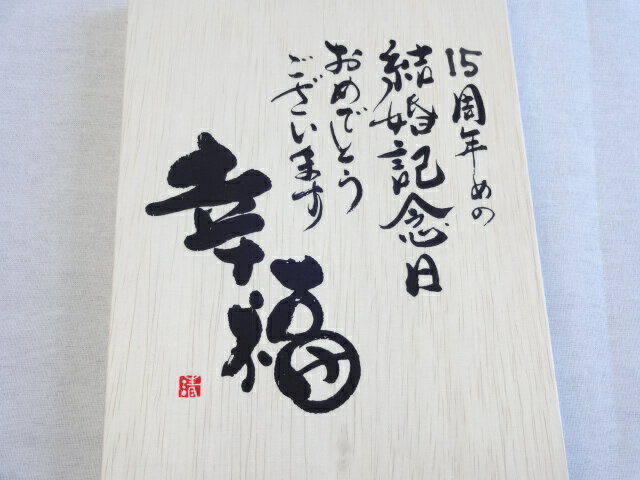 15周年めの
結婚記念日
おめでとう
ございます
幸福
清